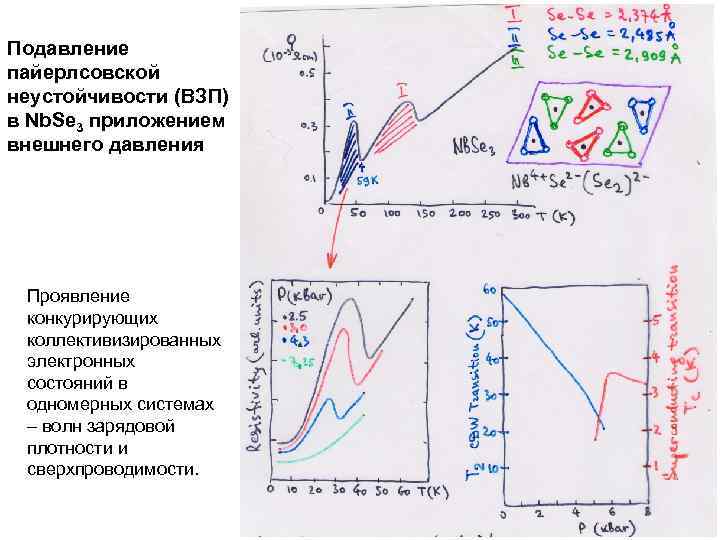 Подавление
пайерлсовской
неустойчивости (ВЗП)
в NbSe3 приложением
внешнего давления
Проявление
конкурирующих
коллективизированных
электронных
состояний в
одномерных системах
– волн зарядовой
плотности и
сверхпроводимости.
I Se-Se = 2,374 Å
II Se-Se = 2,485 Å
III Se-Se = 2,909 Å
ρ
(10⁻³ Ω cm)
0.5
0.3
0.1
II
I
59K
NbSe3
Nb4+Se2-(Se2)2-
0 50 100 150 200 250 300 T(K)
Resistivity (arb. units)
P(кbar)
• 2.5
• 3,0
• 4,3
- 7,25
0 10 20 30 40 50 60 T(K)
T2 CDW Transition (K)
60
50
40
30
20
10
5
4
3
2
1
Superconducting transition
Tc (K)
0 2 4 6 8
P (кbar)